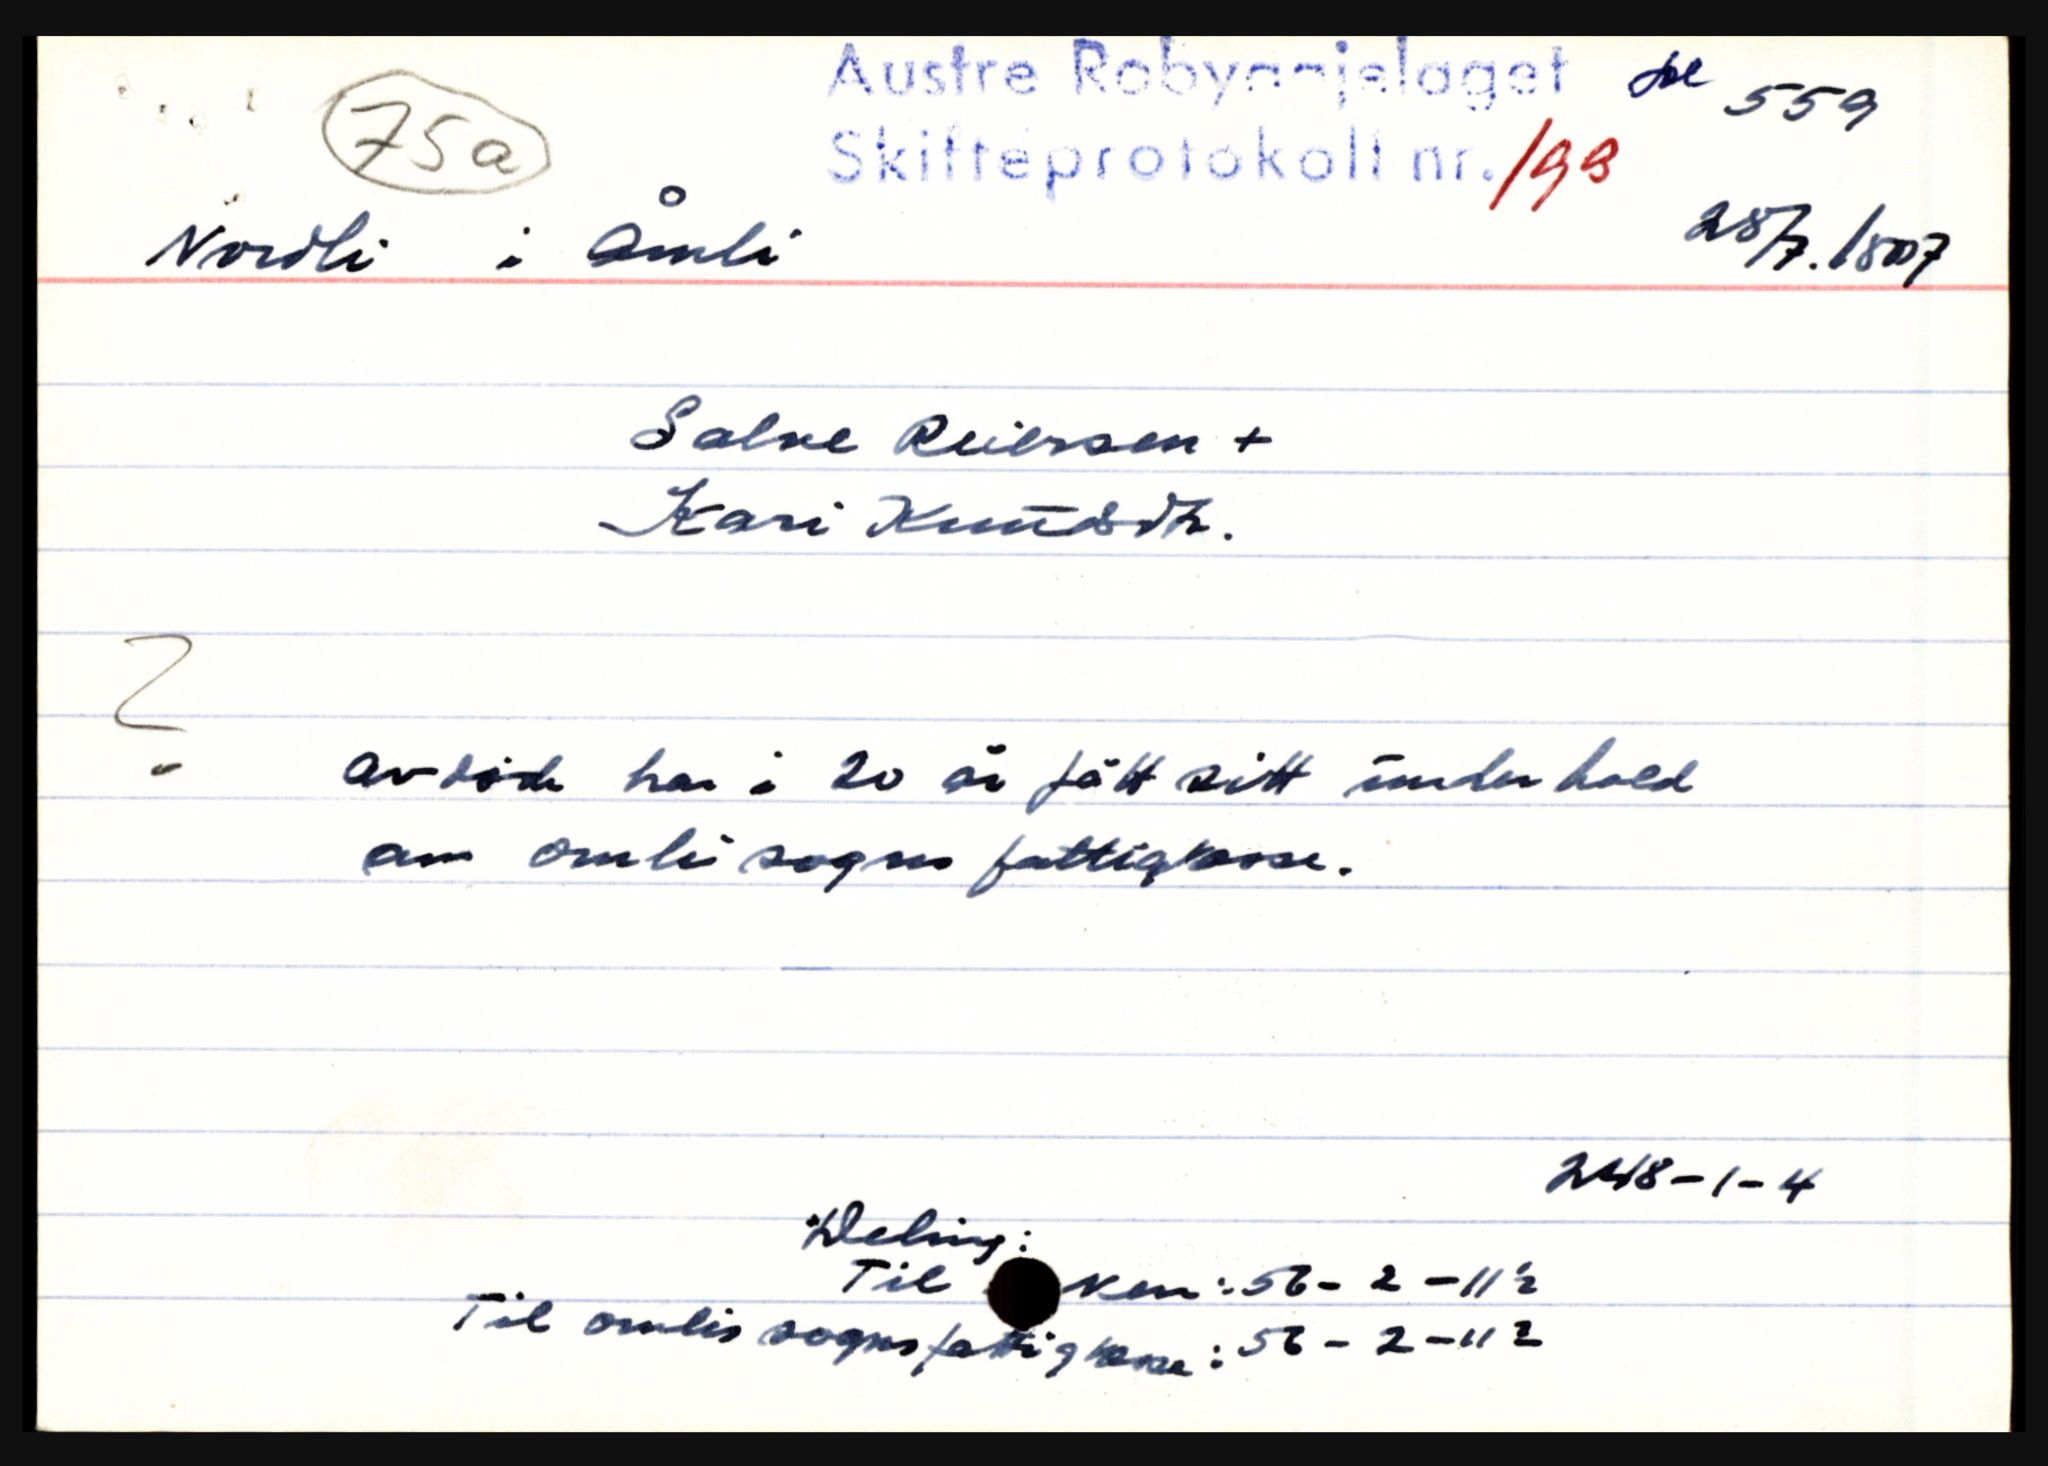 75a
Austre Robyggjelaget fol 559
Skifteprotokoll nr. 198
Nordli i Åmli 28/7.1807
Salve Reiersen +
Kari Knudsdtr.
avdøde har i 20 år fått sitt underhold
av omli sogns fattigkasse.
248-1-4
Deling:
Til ken: 56-2-11½
Til omlis sogns fattigkasse: 56-2-11½